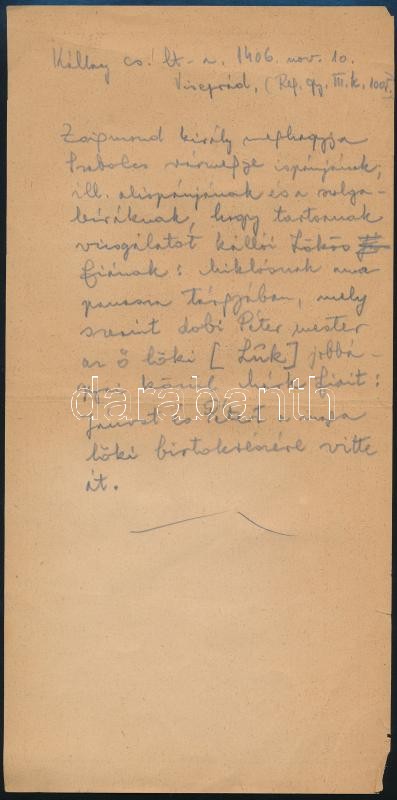 Kállay cs. lt-a. 1406. nov. 10.
Visegrád, (Rep. gy. III. k. 100
Zsigmond király meghagyja
Szabolcs vármegye ispánjának,
ill. alispánjának és a szolga-
bíráknak, hogy tartsanak
vizsgálatot kállói Lökös
fiának: Miklósnak ama
panasza tárgyában, mely
szerint dobi Péter mester
az ő löki [Lûk] jobbá-
gyai közül Márk fiait:
Jánost és Pétert a maga
löki birtokrészére vitte
át.
darabanth